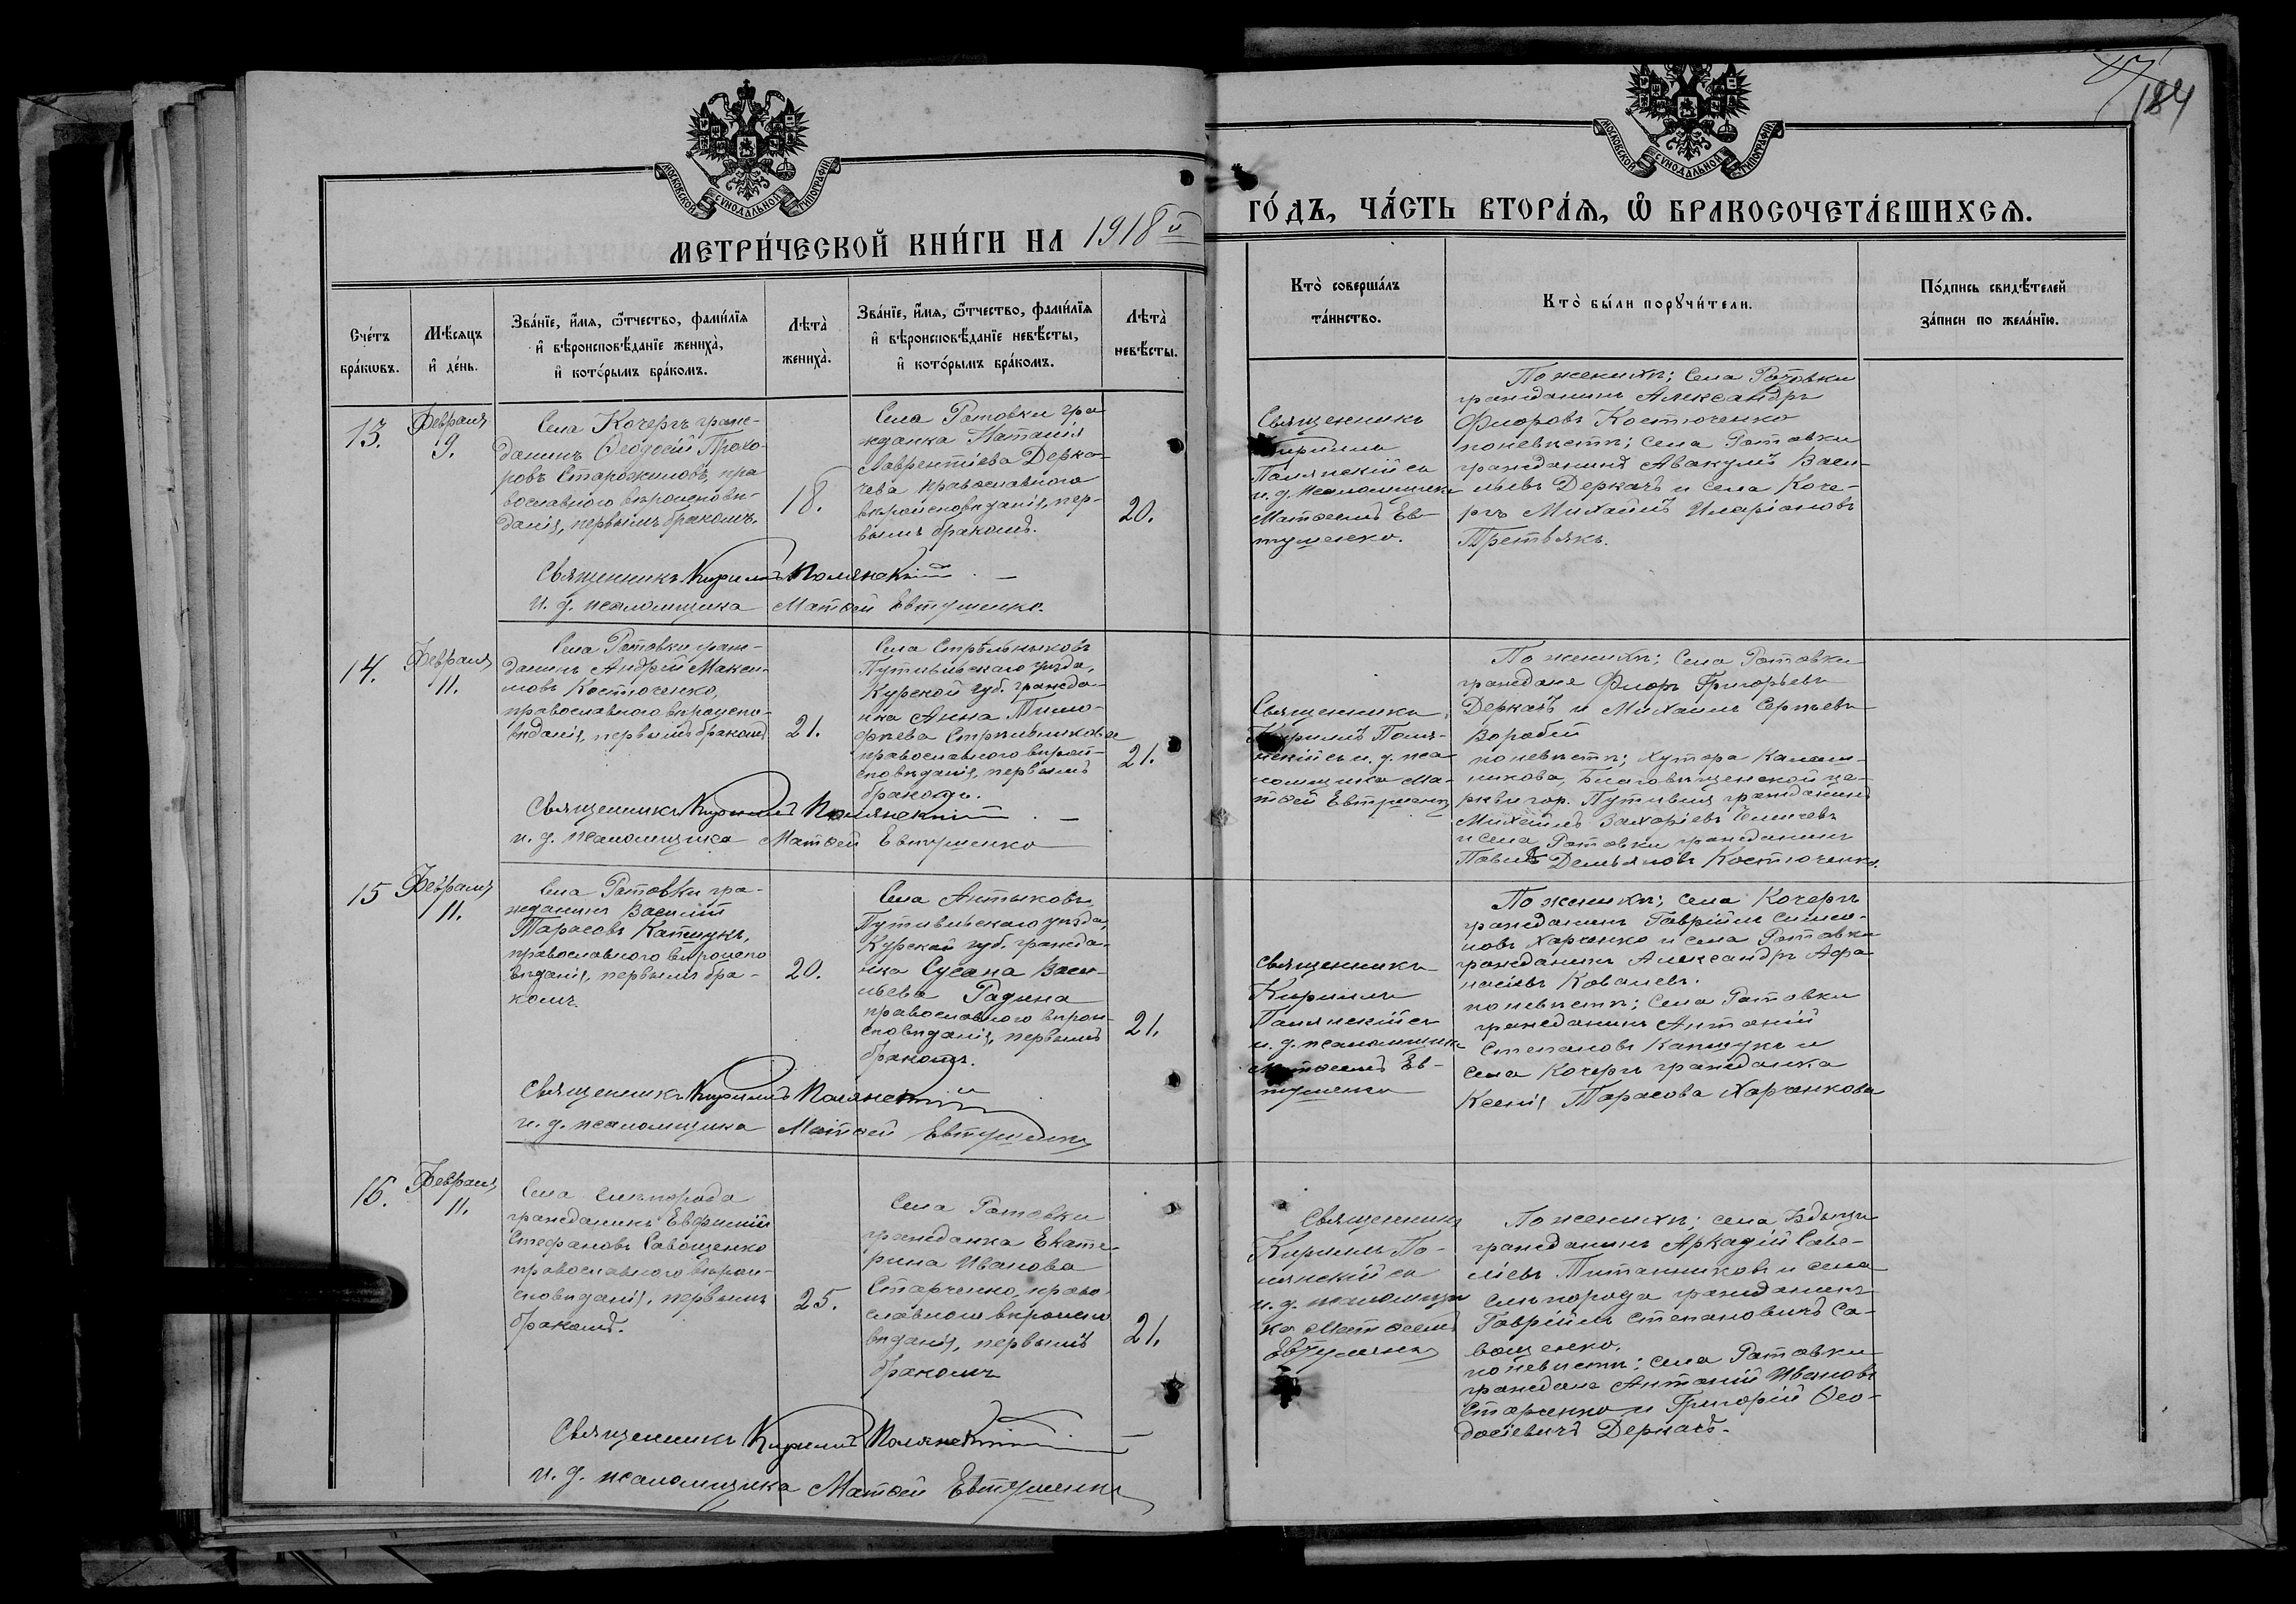 184
МОСКОВСКОЙ СУНОДАЛЬНОЙ ТИПОГРАФІИ
МОСКОВСКОЙ СУНОДАЛЬНОЙ ТИПОГРАФІИ
МЕТРИ́ЧЕСКОЙ КНИ́ГИ НА 1918й
ГО́ДЪ, ЧА́СТЬ ВТОРА́Я, Ѡ҆ БРАКОСОЧЕТА́ВШИХСЯ.
Сче́тъ
бра́кѡвъ.
Мѣ́сяцъ
и҆ де́нь.
Зва́нїе, и҆́мя, ѻ҆́тчество, фами́лїя
и҆ вѣроисповѣ́данїе жениха̀,
и҆ кото́рымъ бра́комъ.
Лѣта̀
жениха̀.
Зва́нїе, и҆́мя, ѻ҆́тчество, фами́лїя
и҆ вѣроисповѣ́данїе невѣ́сты,
и҆ кото́рымъ бра́комъ.
Лѣта̀
невѣ́сты.
Кто̀ соверша́лъ
та́инство.
Кто̀ бы́ли порꙋчи́тели.
По́дпись свидѣ́телей
за́писи по жела́нїю.
13.
Февраля
9.
Села Кочергъ граж-
данинъ Ѳеодосій Прохо-
ровъ Старожиловъ, пра
вославнаго вѣроисповѣ-
данія, первымъ бракомъ.
18.
Села Ротовки гра
жданка Наталія
Лаврентіева Дерка-
чева православнаго
вѣроисповѣданія, пер-
вымъ бракомъ.
20.
Священникъ
Кириллъ
Полянскій съ
и. д. псаломщика
Матѳеемъ Ев-
тушенко.
По женихѣ; Села Ротовки
гражданинъ Александръ
Флоровъ Костюченко
по невѣстѣ; села Ротовки
гражданинъ Авакумъ Васи-
льевъ Деркачъ и села Коче-
ргъ Михаилъ Иларіоновъ
Третьякъ.
Священникъ Кириллъ Полянскій
И. д. псаломщика Матѳей Евтушенко.
14.
Февраля
11.
Села Ротовки граж-
данинъ Андрей Макси-
мовъ Костюченко,
православнаго вѣроиспо-
вѣданія, первымъ бракомъ
21.
Села Стрѣльниковъ
Путивльскаго уѣзда,
Курской губ. гражда-
нка Анна Тимо-
фѣева Стрѣльникова
православнаго вѣрои-
сповѣданія, первымъ
бракомъ.
21.
Священникъ
Кириллъ Поля-
нскій съ и. д. пса
ломщика Ма-
тѳей Евтушенко
По женихѣ; Села Ротовки
граждане Флоръ Григорьевъ
Деркачъ и Михаилъ Сергѣевъ
Воробей
по невѣстѣ; Хутора Калаш-
никова, Благовѣщенской це-
ркви гор. Путивля гражданинъ
Михаилъ Захаріевъ
и села Ротовки гражданинъ
Павелъ Демьяновъ Костюченко.
Священникъ Кириллъ Полянскій
и. д. псаломщика Матѳей Евтушенко
15
Февраля
11.
Села Ротовки гра-
жданинъ Василій
Тарасовъ Капшукъ,
православнаго вѣроиспо
вѣданія, первымъ бра-
комъ.
20.
Села Антыковъ,
Путивльскаго уѣзда,
Курской губ. гражда-
нка Сусана Васи-
льева Радина
православнаго вѣрои-
сповѣданія, первымъ
бракомъ.
21.
Священникъ
Кириллъ
Полянскій съ
и. д. псаломщика
Матѳеемъ Ев-
тушенко
По женихѣ; села Кочергъ
гражданинъ Гавріилъ Симео-
новъ Харченко и села Ротовки
гражданинъ Александръ Афа
насіевъ Ковалевъ.
по невѣстѣ; Села Ротовки
гражданинъ Антоній
Степановъ Капшукъ и
села Кочергъ гражданка
Ксенія Тарасова Харченкова
Священникъ Кириллъ Полянскій
и. д. псаломщика Матѳей Евтушенко
16.
Февраля
11.
Села Сльпорода
гражданинъ Евфимій
Стефановъ Савощенко
православнаго вѣрои-
сповѣданія, первымъ
бракомъ.
25.
Села Ротовки
гражданка Екате-
рина Иванова
Старченко, право
славнаго вѣроиспо
вѣданія, первымъ
бракомъ
21.
Священникъ
Кириллъ По-
лянскій съ
и. д. псаломщи
ка Матѳеемъ
Евтушенко
По женихѣ; села
гражданинъ Аркадій Саве-
ліевъ Питанниковъ и села
Сльпорода гражданинъ
Гавріилъ Степановичъ Са-
вощенко.
по невѣстѣ: села Ротовки
граждане Антоній Ивановъ
Старченко и Григорій Ѳео-
досіевичъ Деркачъ.
Священникъ Кириллъ Полянскій
и. д. псаломщика Матѳей Евтушенко